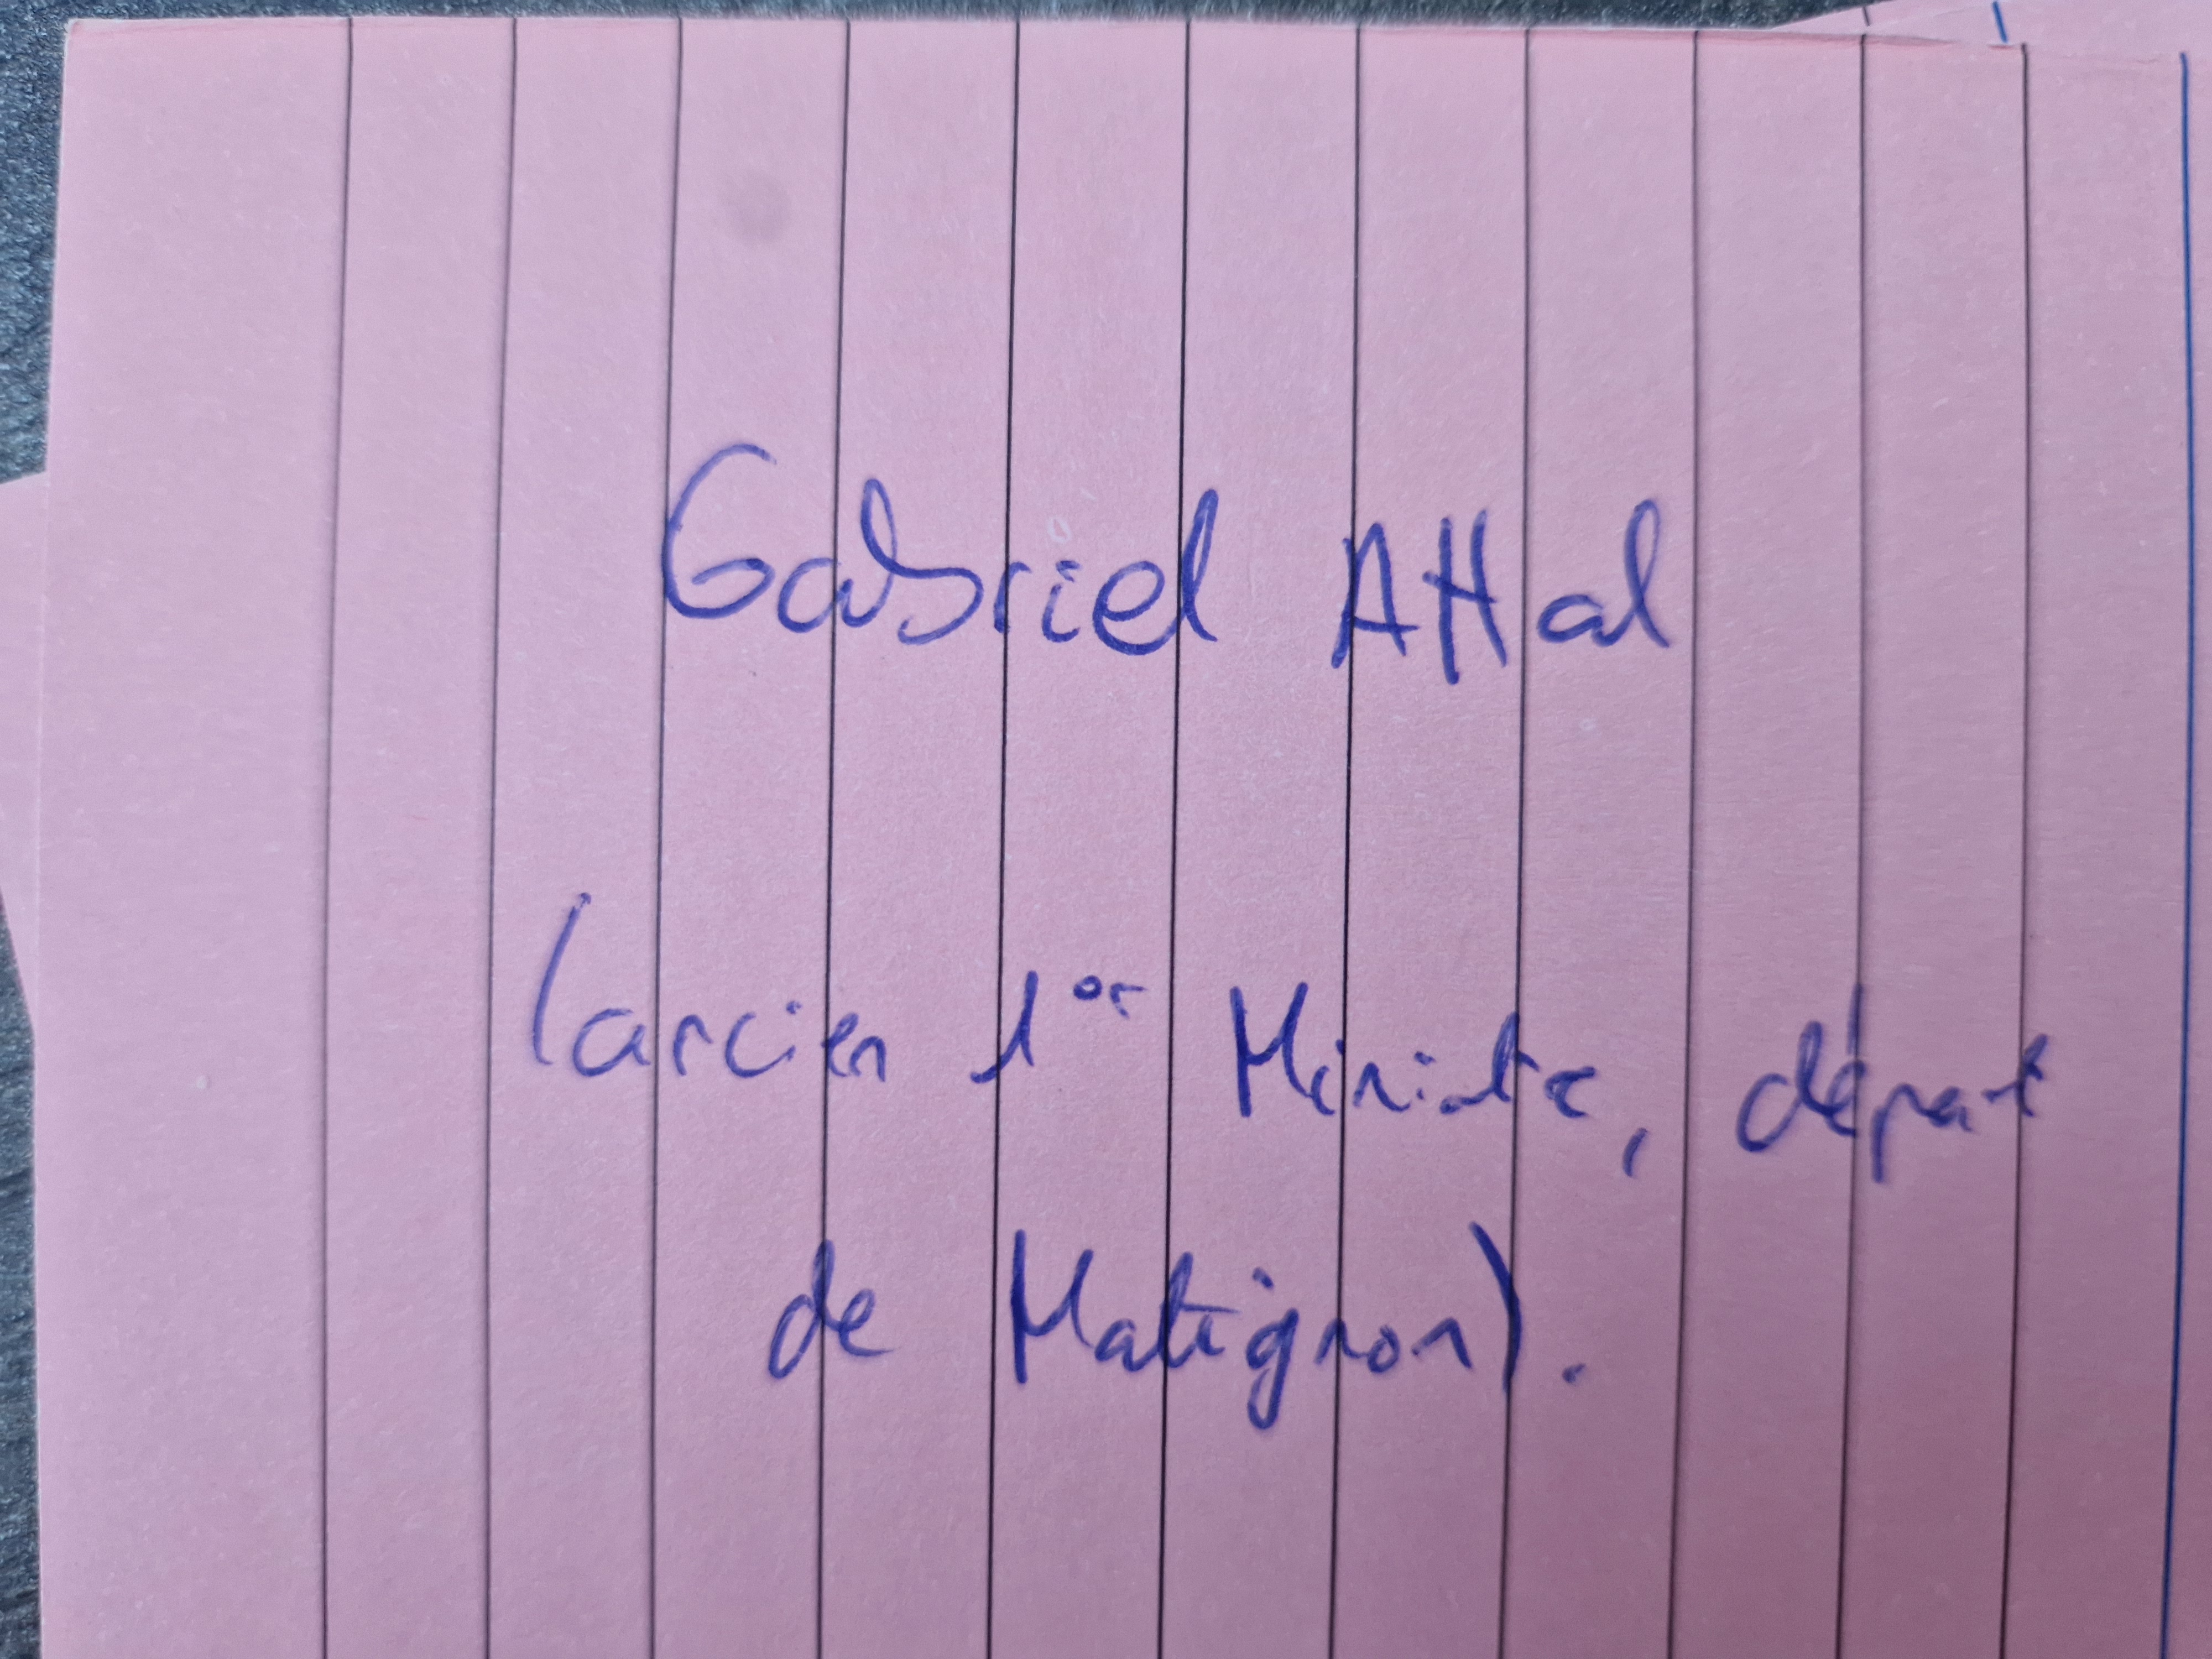 Gabriel Attal
(ancien 1er Ministre, départ
de Matignon).